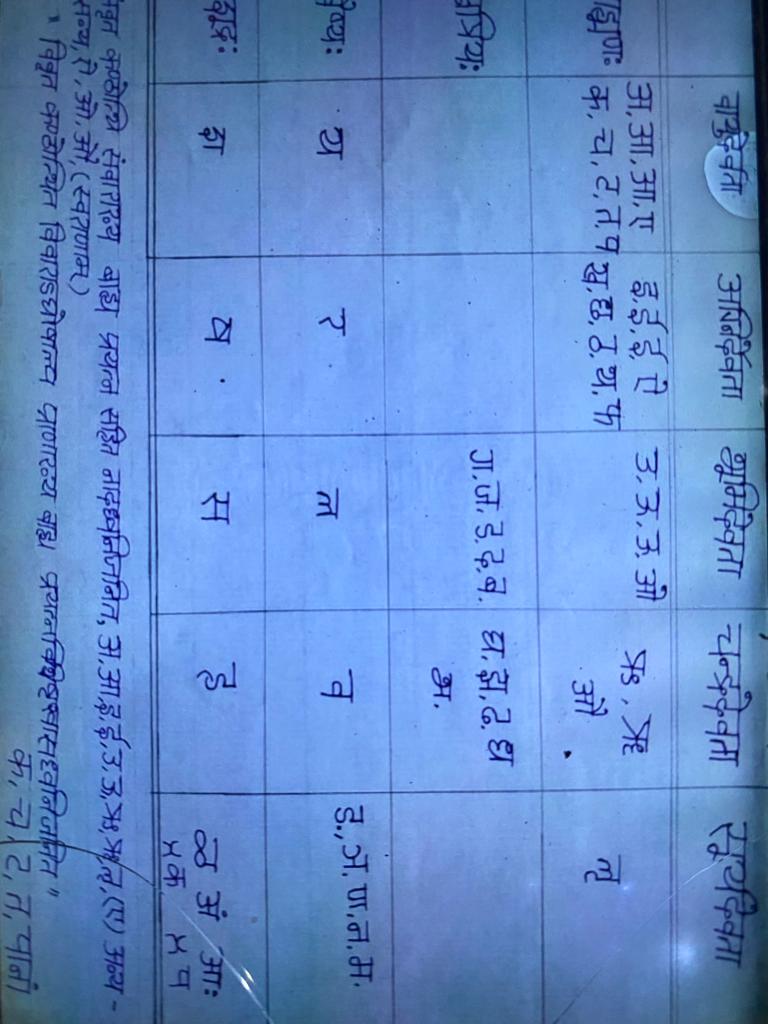 वायुदेवता अग्निर्देवता भूमिदेवता चन्द्रदेवता सूर्यदेवता
अ, आ, आ, ए इ, ई, ई, ऐ उ, ऊ, ऊ, ओ ऋ, ॠ
ह्मणः क, च, ट, त, प ख, छ, ठ, थ, फ औ लृ
त्रियः ग, ज, ड, द, ब, घ, झ, ढ, ध
भ.
वैष्यः य र ल व ङ., ञ, ण, न, म.
शूद्रः श ष स ह ळ अं आः
ᳵक ᳵप
कण्ठोत्थि संवाराख्य बाह्य प्रयत्न सहित नादध्वनिजनित, अ, आ, इ, ई, उ, ऊ, ऋ, ॠ, लृ, (ए) अन्य -
सन्य, ऐ, ओ, औ, (स्वराणाम्)
" विवृत कण्ठोत्थित विवाराऽघोषाल्प प्राणाख्य बाह्य प्रयत्नविशिष्टश्वासध्वनिजनित "
क, च, ट, त, पानां